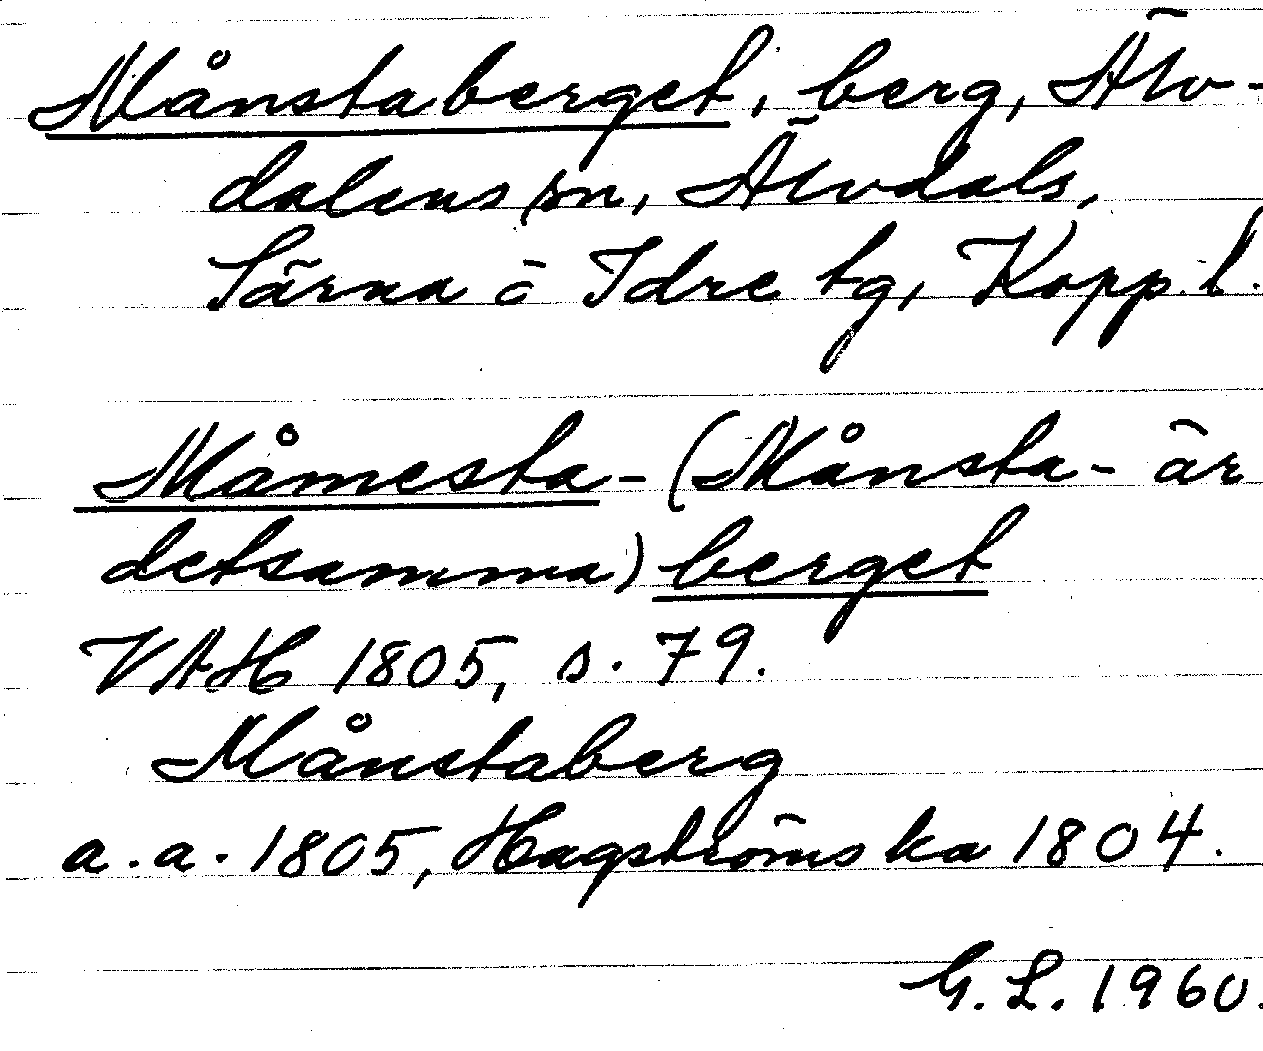 Månstaberget, berg, Älv-
dalens sn, Älvdals,
Särna o Idre tg, Kopp. l.
Måmesta- (Månsta- är
detsamma) berget
VAH 1805, s. 79.
Månstaberg
a.a. 1805, Hagströms ka 1804.
G. L. 1960.